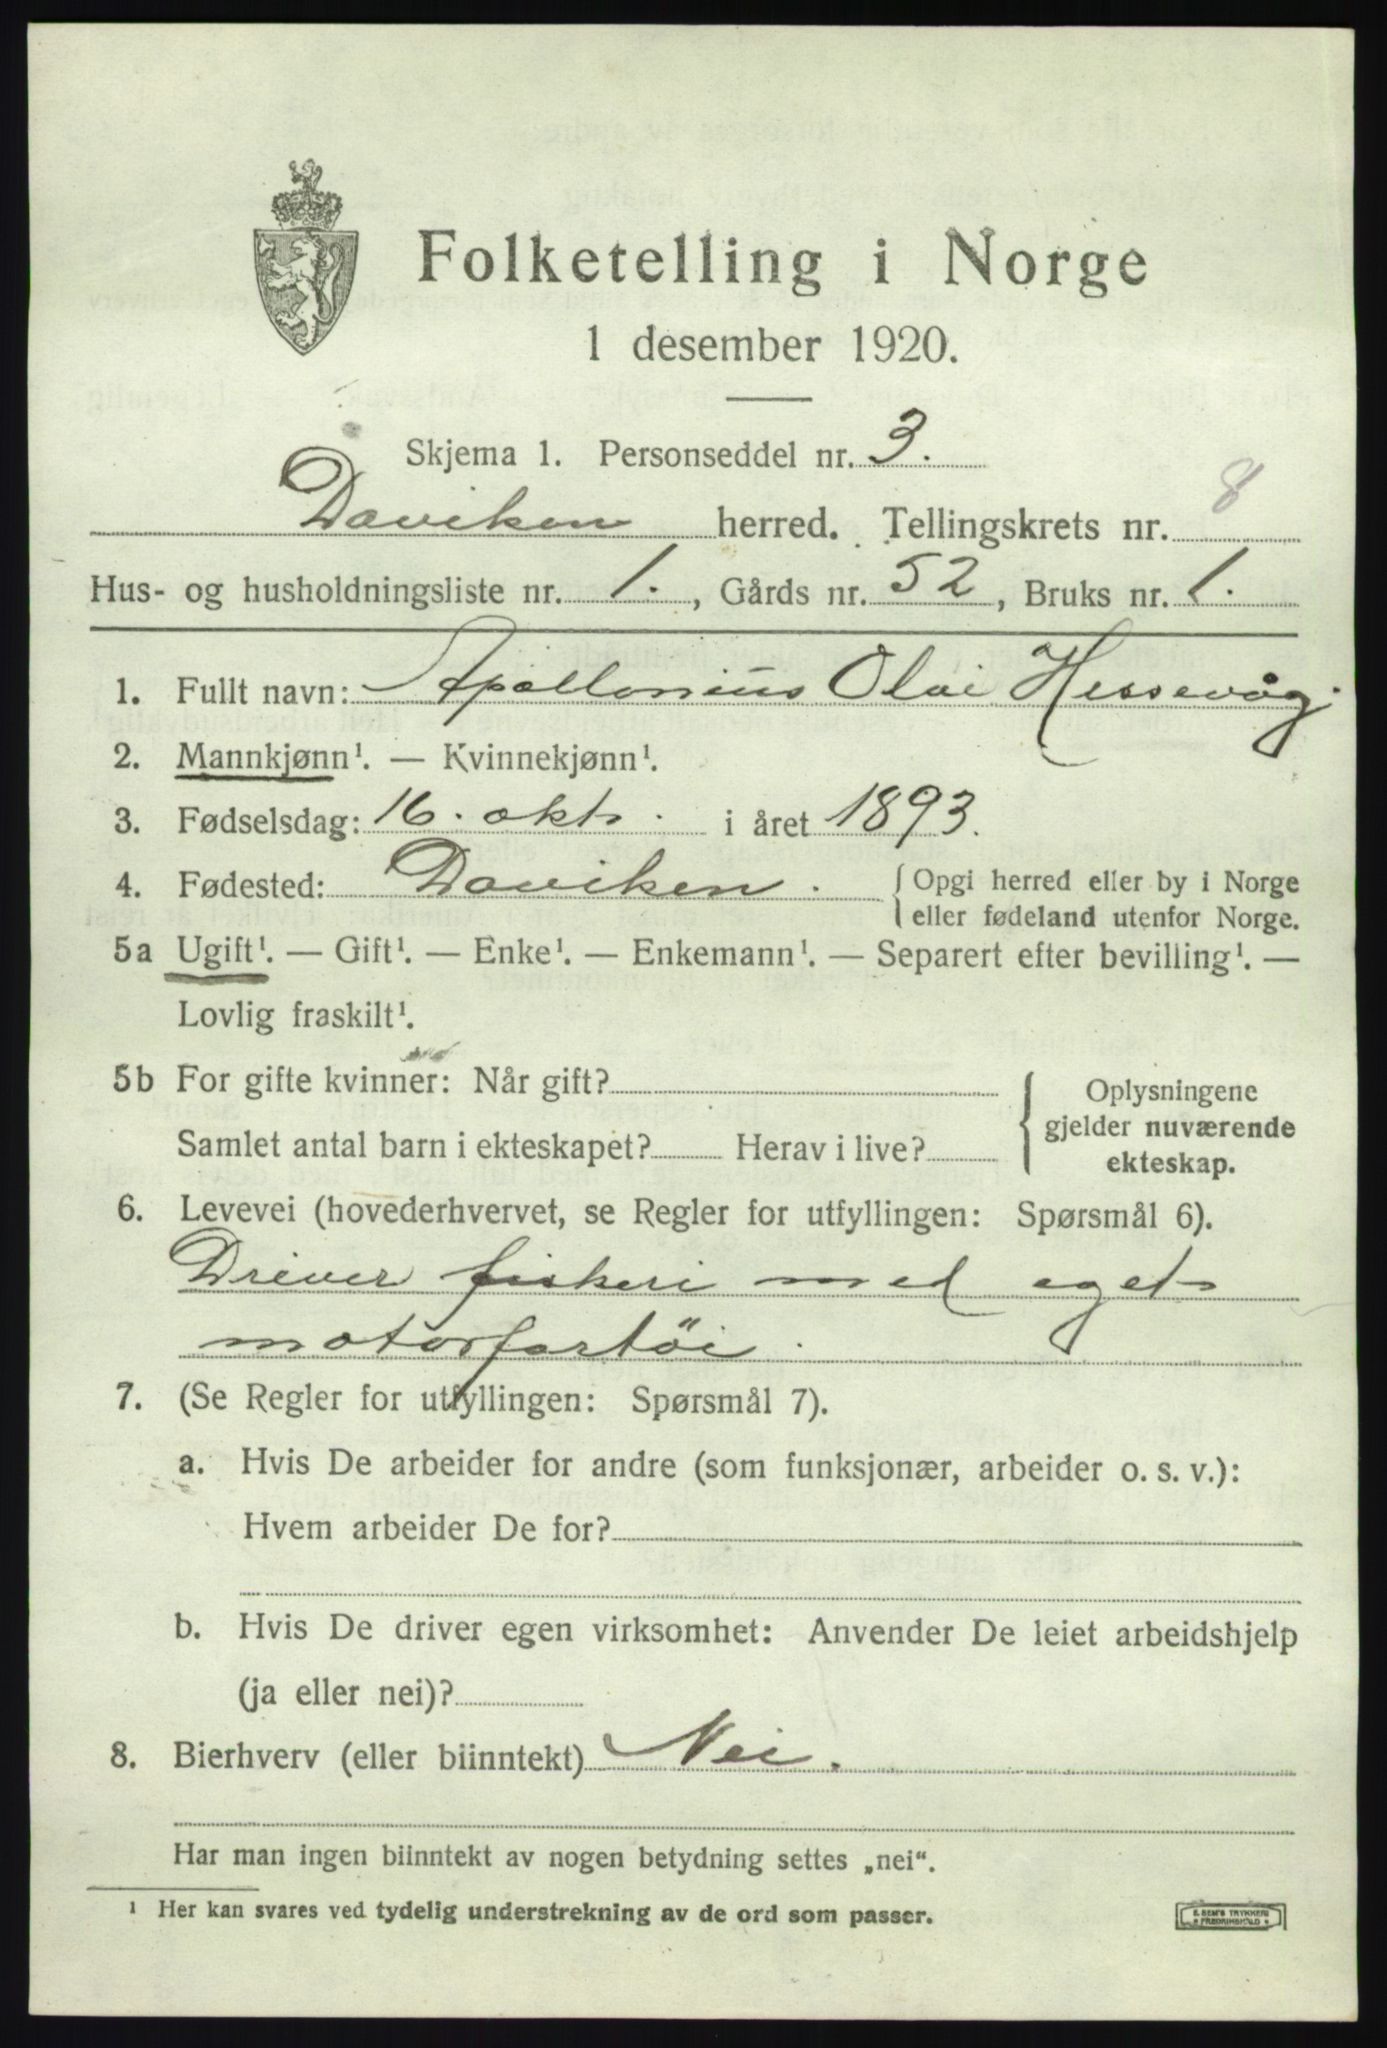 Folketelling i Norge
1 desember 1920.
Skjema 1. Personseddel nr. 3.
Daviken herred. Tellingskrets nr. 8
Hus- og husholdningsliste nr. 1. , Gårds nr. 52 , Bruks nr. 1.
1. Fullt navn: Apollonius Olai Hessevåg.
2. Mannkjønn¹. — Kvinnekjønn¹.
3. Fødselsdag: 16. okt. i året 1893.
4. Fødested: Daviken. { Opgi herred eller by i Norge
eller fødeland utenfor Norge.
5a Ugift¹. — Gift¹. — Enke¹. — Enkemann¹. — Separert efter bevilling¹. —
Lovlig fraskilt¹.
5b For gifte kvinner: Når gift?
Samlet antal barn i ekteskapet? Herav i live?
{ Oplysningene
gjelder nuværende
ekteskap.
6. Levevei (hovederhvervet, se Regler for utfyllingen: Spørsmål 6).
Driver fiskeri med eget
motorfartöi.
7. (Se Regler for utfyllingen: Spørsmål 7).
a. Hvis De arbeider for andre (som funksjonær, arbeider o. s. v.):
Hvem arbeider De for?
b. Hvis De driver egen virksomhet: Anvender De leiet arbeidshjelp
(ja eller nei)?
8. Bierhverv (eller biinntekt) Nei.
Har man ingen biinntekt av nogen betydning settes „nei“.
¹ Her kan svares ved tydelig understrekning av de ord som passer.
E. SEM'S TRYKKERI
FREDRIKSHALD